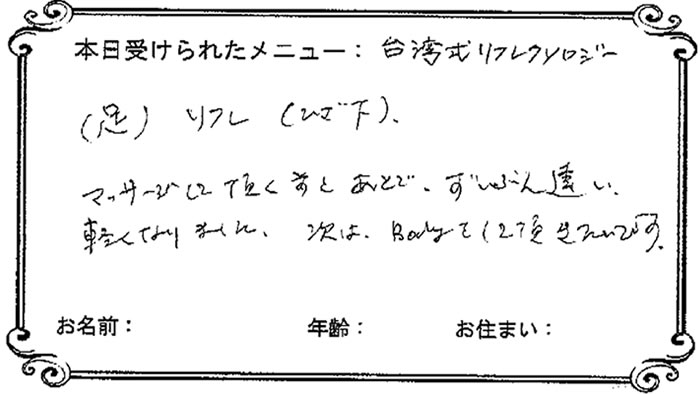 本日受けられたメニュー：台湾式リフレクソロジー
(足) リフレ (ひざ下)、
マッサージして頂く前とあとで、ずいぶん違い、
軽くなりました、次は、Bodyをして頂きたいです。
お名前： 年齢： お住まい：